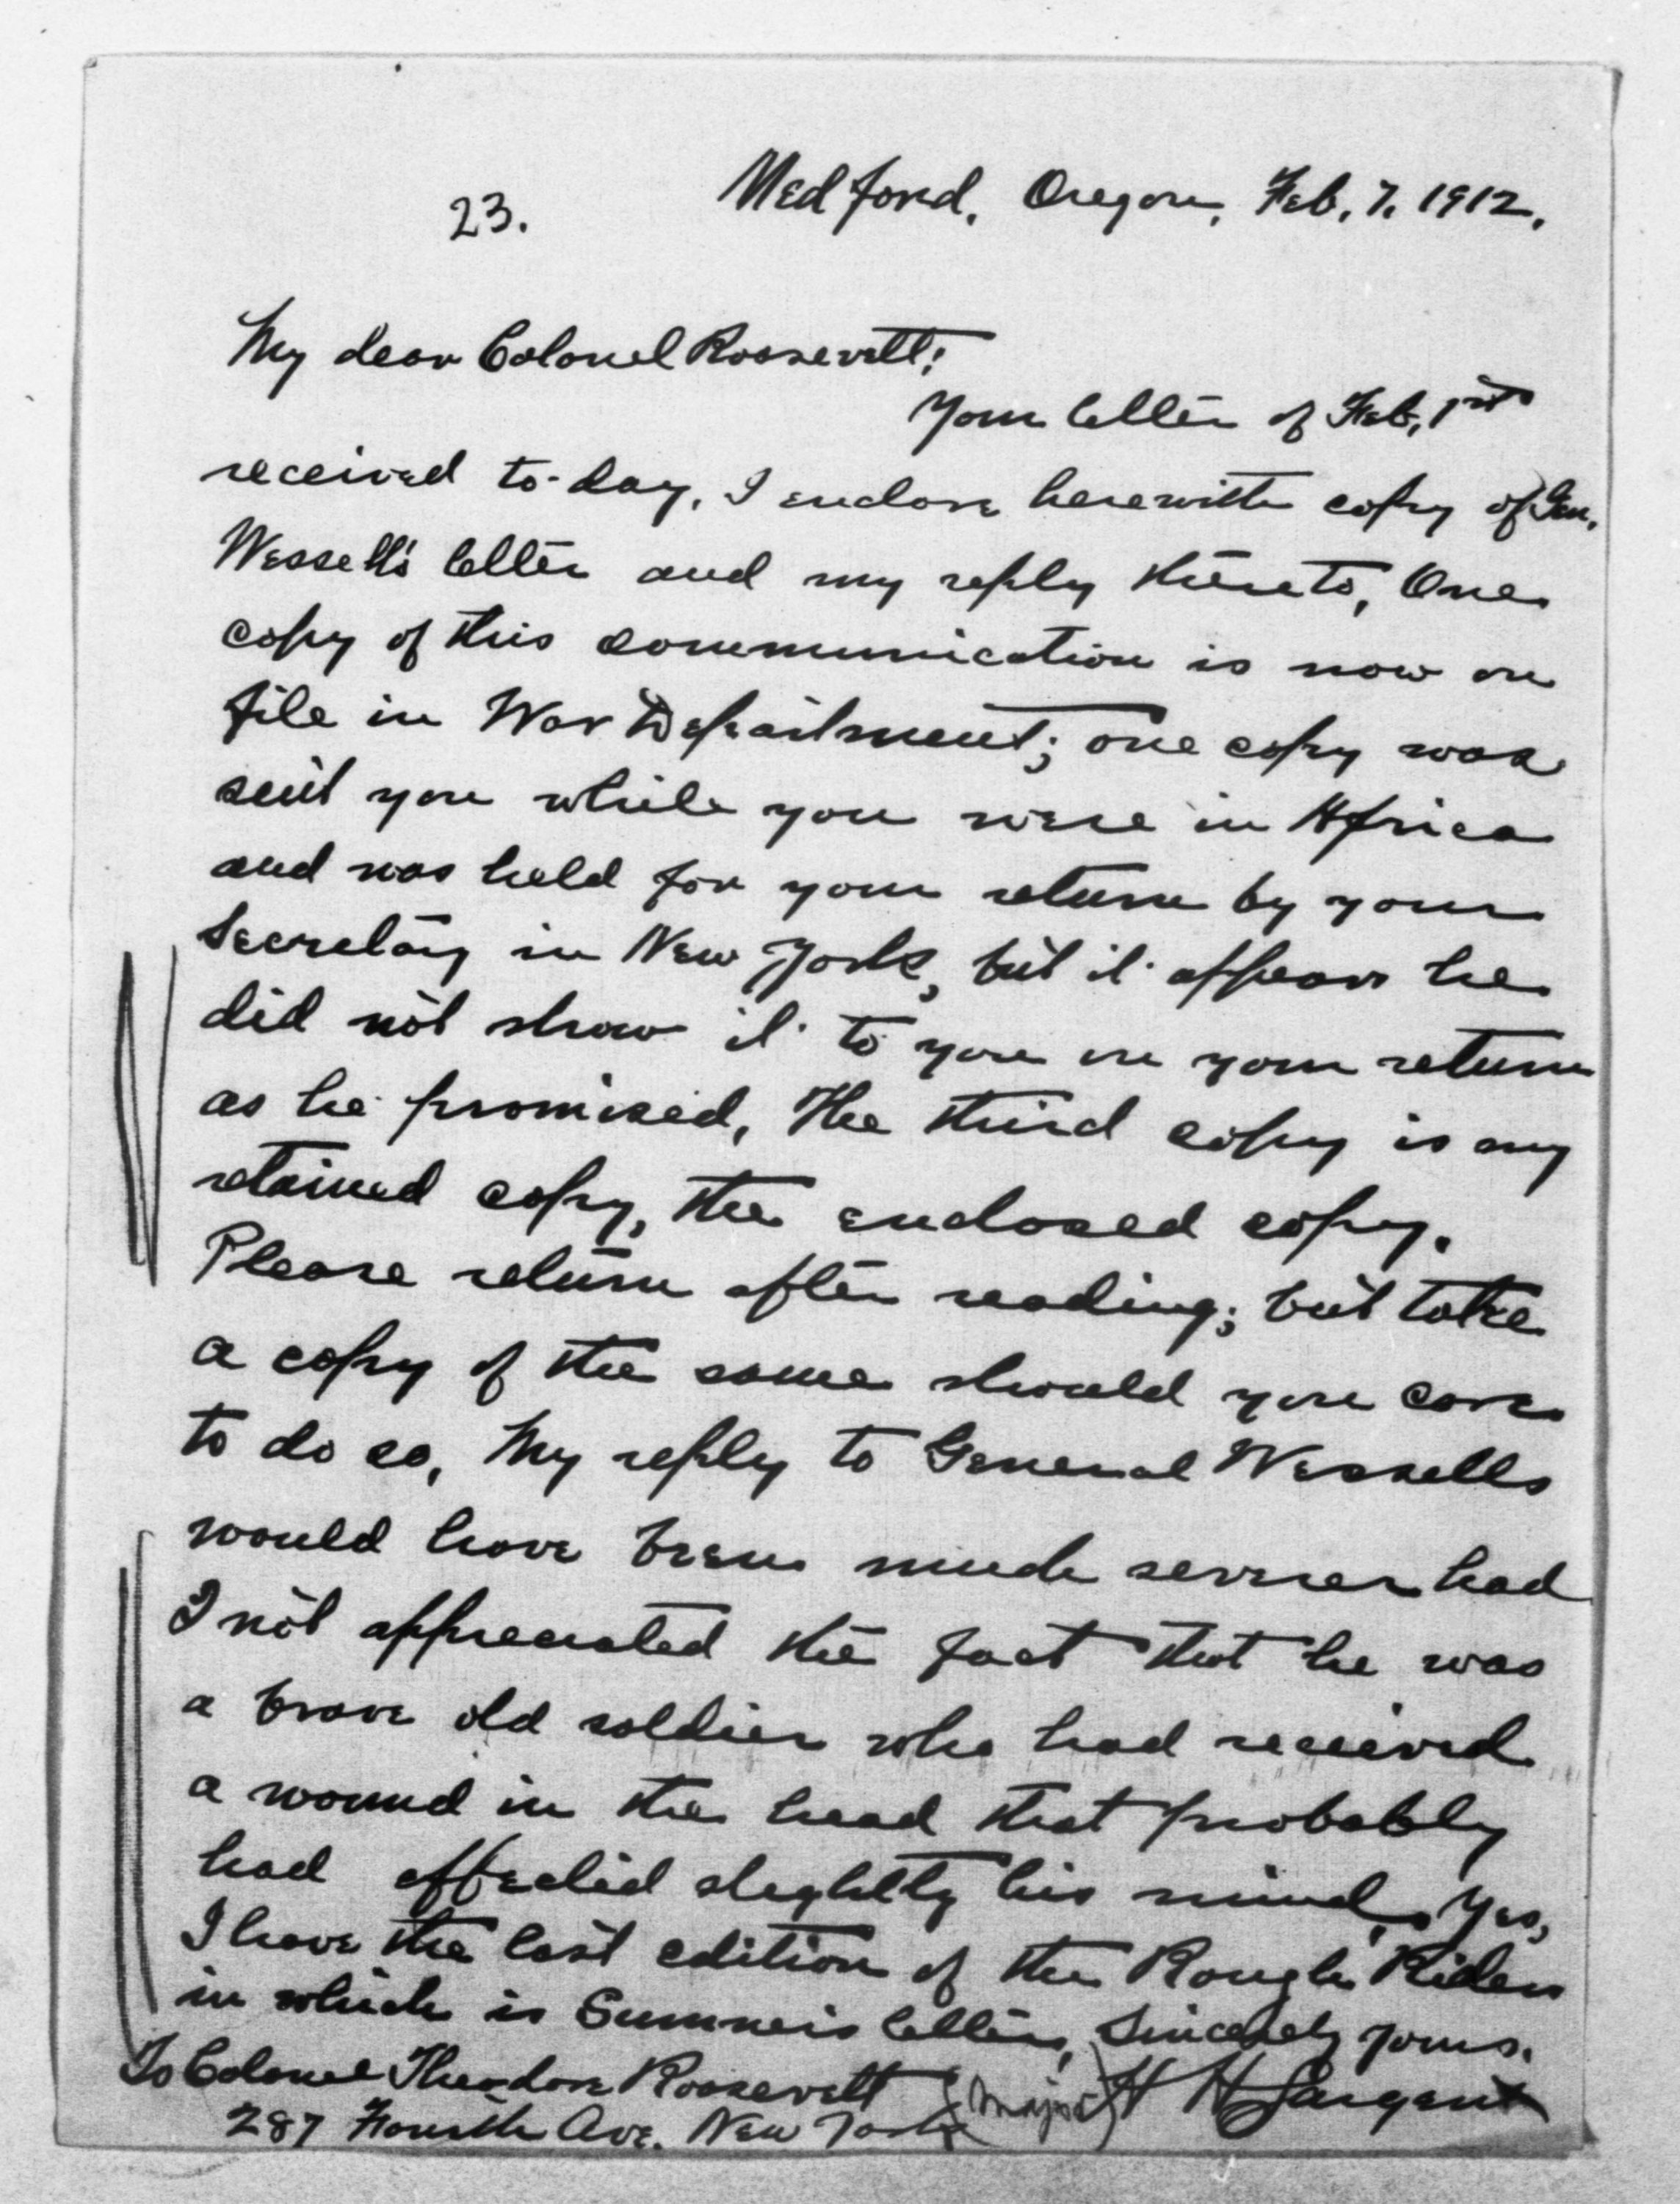 23. Medford, Oregon, Feb. 7, 1912.
My dear Colonel Roosevelt:
Your letter of Feb, 1st
received to-day, I enclose herewith copy of Gen.
Wessells letter and my reply thereto, One
copy of this communication is now on
file in War Department; one copy was
sent you while you were in Africa
and was held for your return by your
Secretary in New York, but it appears he
did not show it to you on your return
as he promised, The third copy is my
retained copy, the enclosed copy.
Please return after reading; but take
a copy of the same should you care
to do so, My reply to General Wessells
would have been much severer had
I not appreciated the fact that he was
a brave old soldier who had received
a wound in the head that probably
had affected slightly his mind. Yes,
I have the last edition of the Rough Riders
in which is Sumner's letter, Sincerely yours.
To Colonel Theodore Roosevelt (Major) H H Sargent
287 Fourth Ave. New York